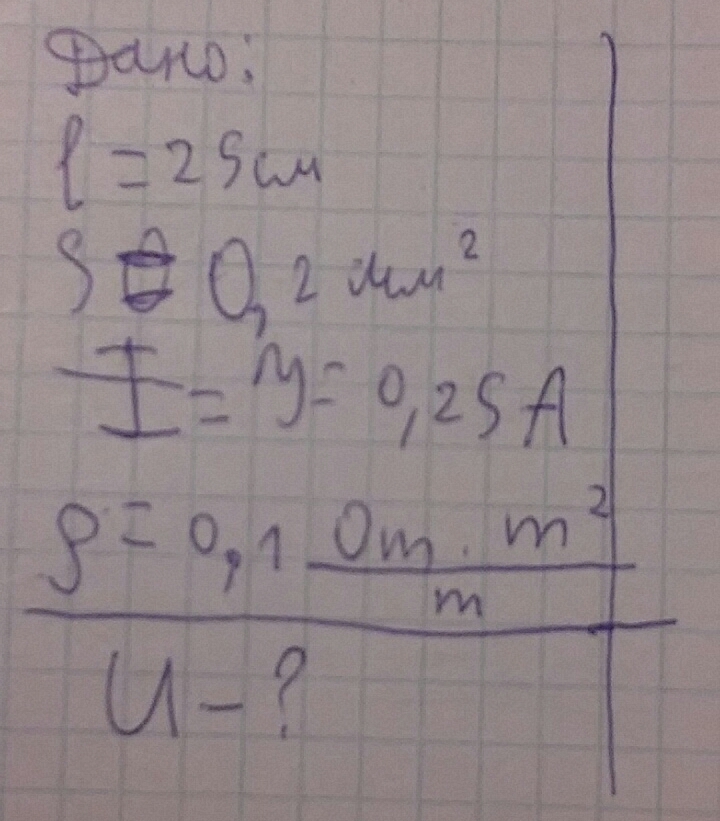 Дано:
l = 25 см
S = 0,2 мм²
I = У = 0,25 А
ρ = 0,1 Om · m² / m
U - ?